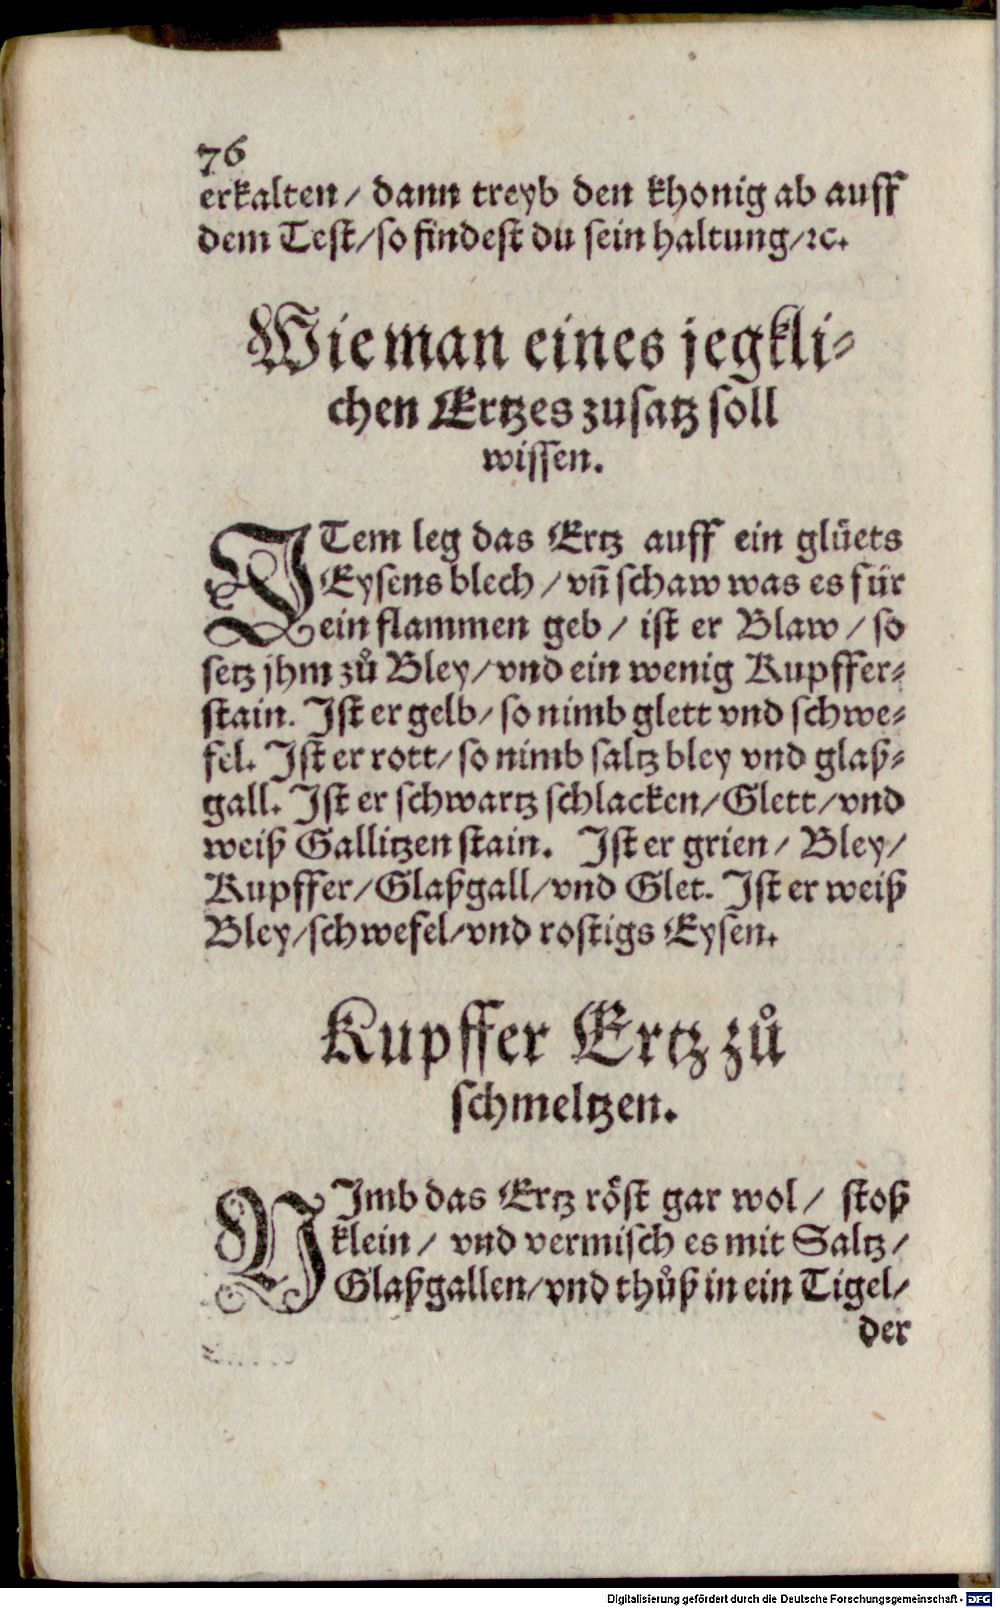 76
erkalten/ dann treyb den khonig ab auff
dem Test/so findest du sein haltung/ꝛc.
Wie man eines jegkli⸗
chen Ertzes zusatz soll
wissen.
ITem leg das Ertz auff ein glüets
Eysens blech/ vñ schaw was es für
ein flammen geb/ ist er Blaw/ so
setz jhm zů Bley/vnd ein wenig Kupffer⸗
stain. Ist er gelb/so nimb glett vnd schwe⸗
fel. Ist er rott/so nimb saltz bley vnd glaß⸗
gall. Ist er schwartz schlacken/Glett/vnd
weiß Gallitzen stain. Ist er grien/ Bley/
Kupffer/Glaßgall/vnd Glet. Ist er weiß
Bley/schwefel/vnd rostigs Eysen.
Kupffer Ertz zů
schmeltzen.
NImb das Ertz röst gar wol/ stoß
klein/ vnd vermisch es mit Saltz/
Glaßgallen/vnd thůß in ein Tigel/
der
Digitalisierung gefördert durch die Deutsche Forschungsgemeinschaft - DFG